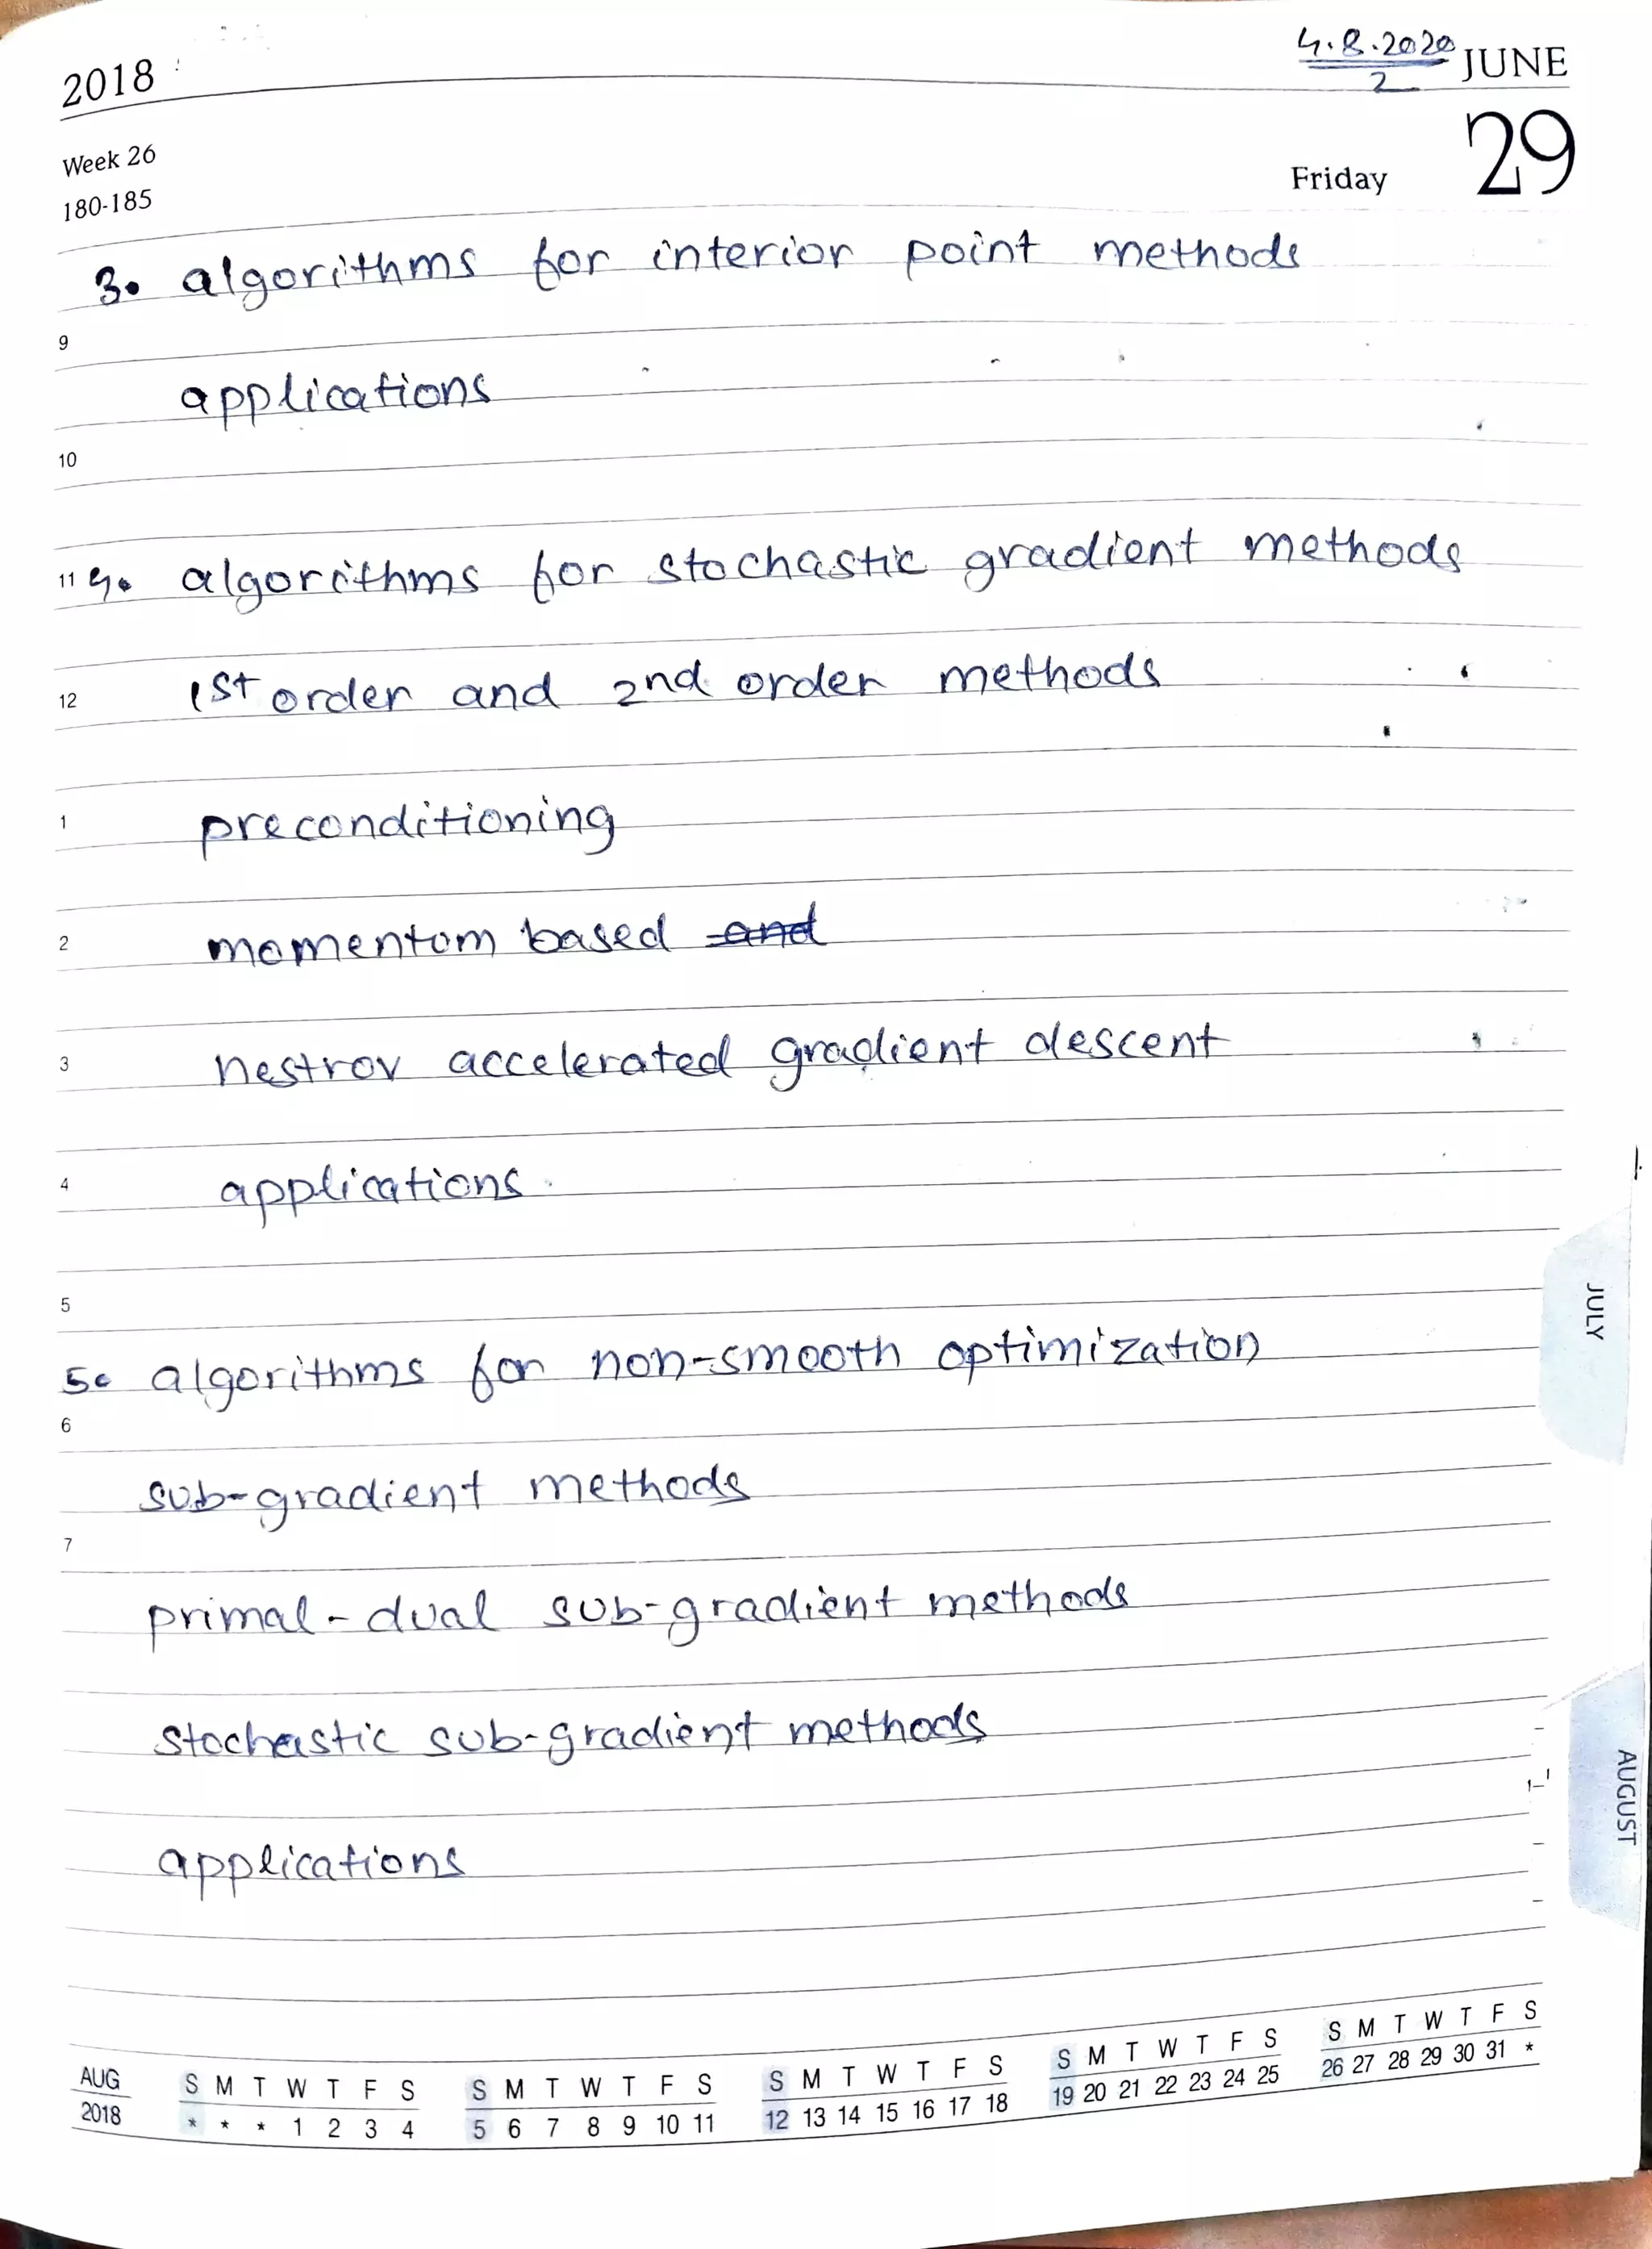 2018
4.8.2020 JUNE
2
Week 26
180-185
Friday 29
3. algorithms for interior point methods
9
applications
10
11 4. algorithms for stochastic gradient methods
12 1st order and 2nd order methods
1 preconditioning
2 momentum based and
3 nestrov accelerated gradient descent
4 applications
5
5. algorithms for non-smooth optimization
6
sub-gradient methods
7
primal-dual sub-gradient methods
stochastic sub-gradient methods
applications
JULY
AUGUST
AUG S M T W T F S S M T W T F S S M T W T F S S M T W T F S S M T W T F S
2018 * * * 1 2 3 4 5 6 7 8 9 10 11 12 13 14 15 16 17 18 19 20 21 22 23 24 25 26 27 28 29 30 31 *